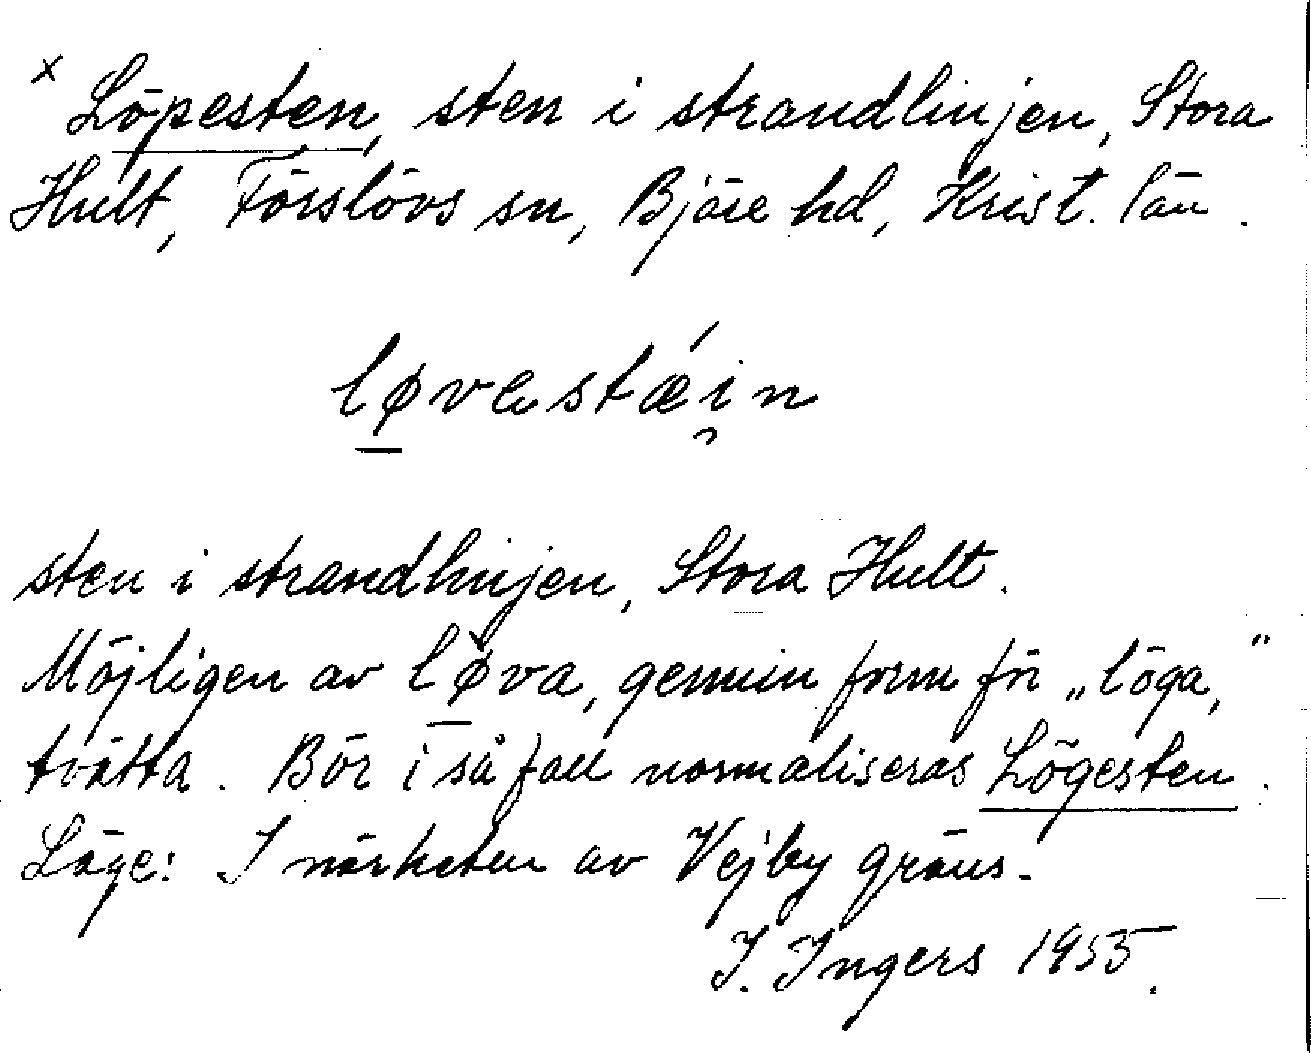 x Löpesten, sten i strandlinjen, Stora
Hult, Förslövs sn, Bjäre hd, Krist. län.
løvestǽi̯n
sten i strandlinjen, Stora Hult.
Möjligen av løva, gemen form för „löga,"
tvätta. Bör i så fall normaliseras Lögesten.
Läge: I närheten av Vejby gräns.
I. Ingers 1955.